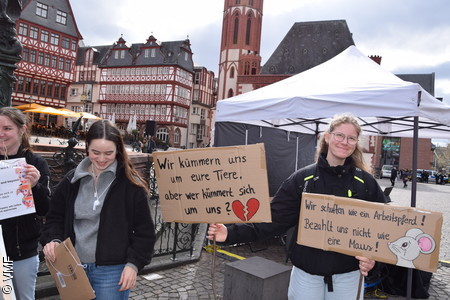 Wir kümmern uns
um eure Tiere,
aber wer kümmert sich
um uns?
Wir schuften wie ein Arbeitspferd!
Bezahlt uns nicht wie
eine Maus!
© VMF